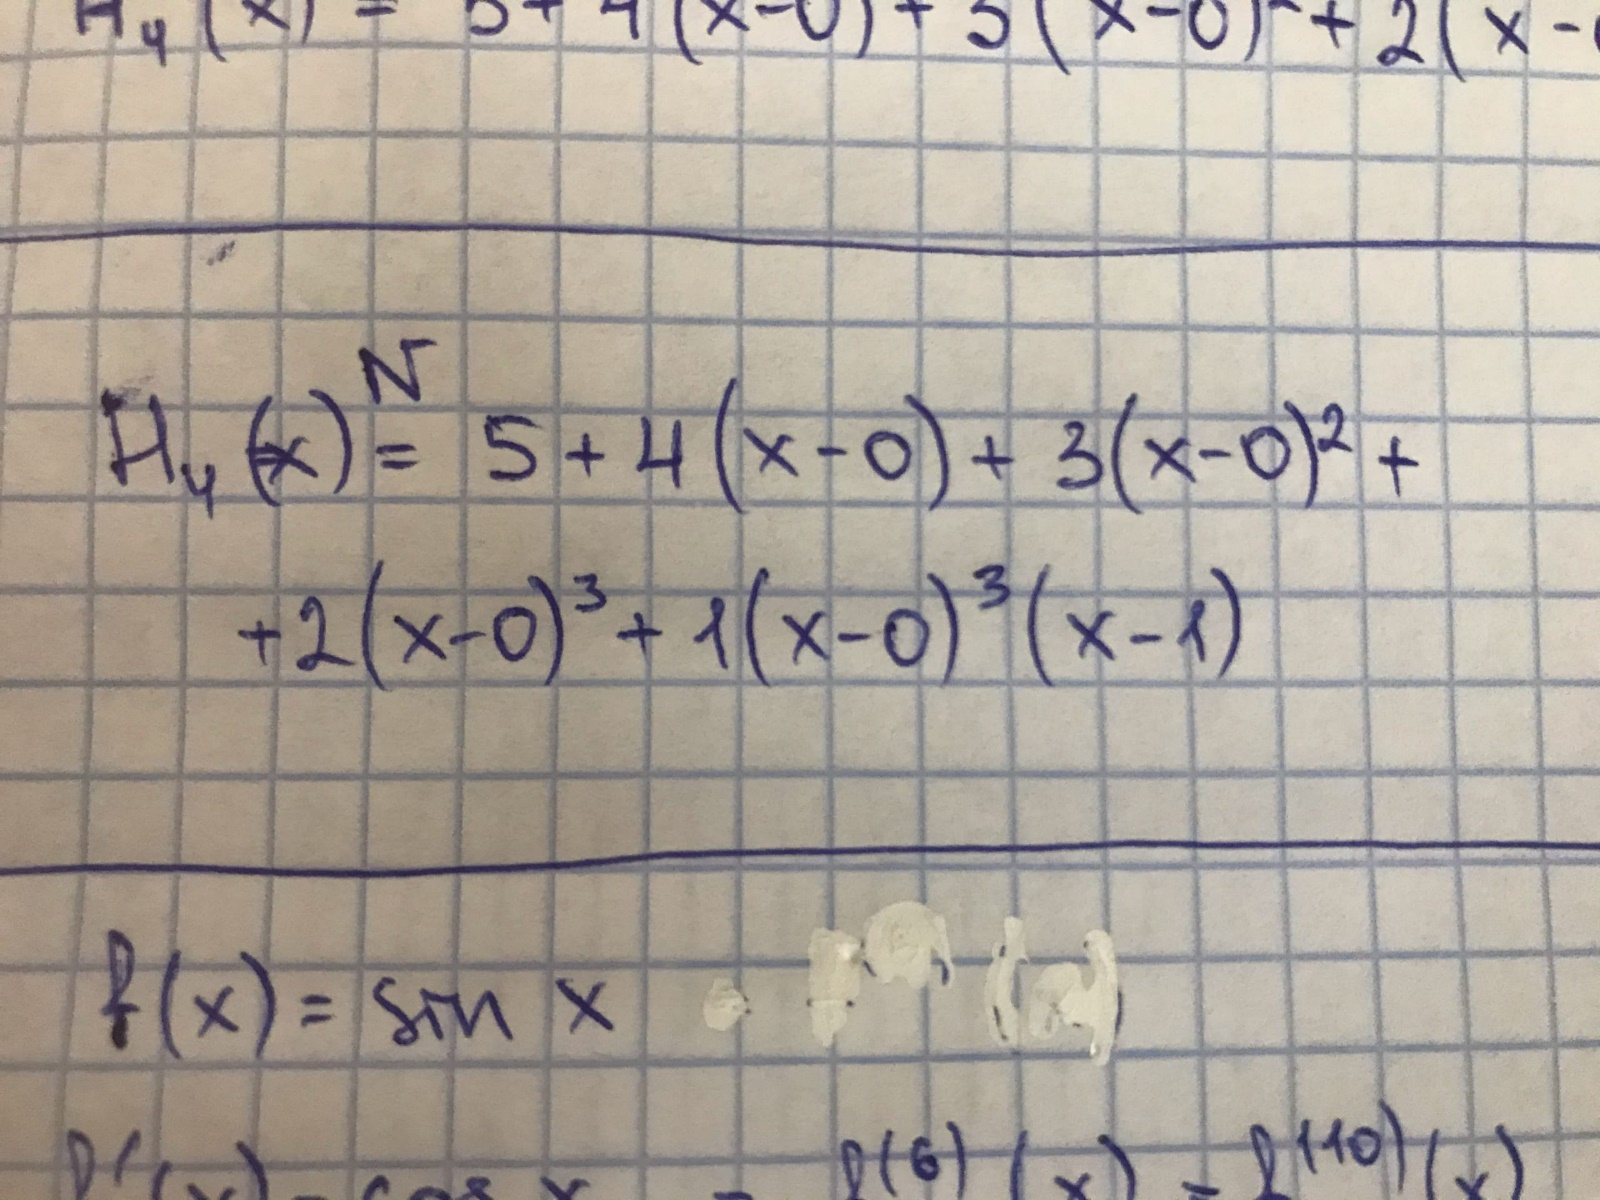 H₄(x) = 5 + 4(x-0) + 3(x-0)² + 2(x-
H₄(x) =ᴺ 5 + 4(x-0) + 3(x-0)² +
+ 2(x-0)³ + 1(x-0)³(x-1)
f(x) = sin x
f'(x) = cos x = f⁽⁶⁾(x) = f⁽¹⁰⁾(x)